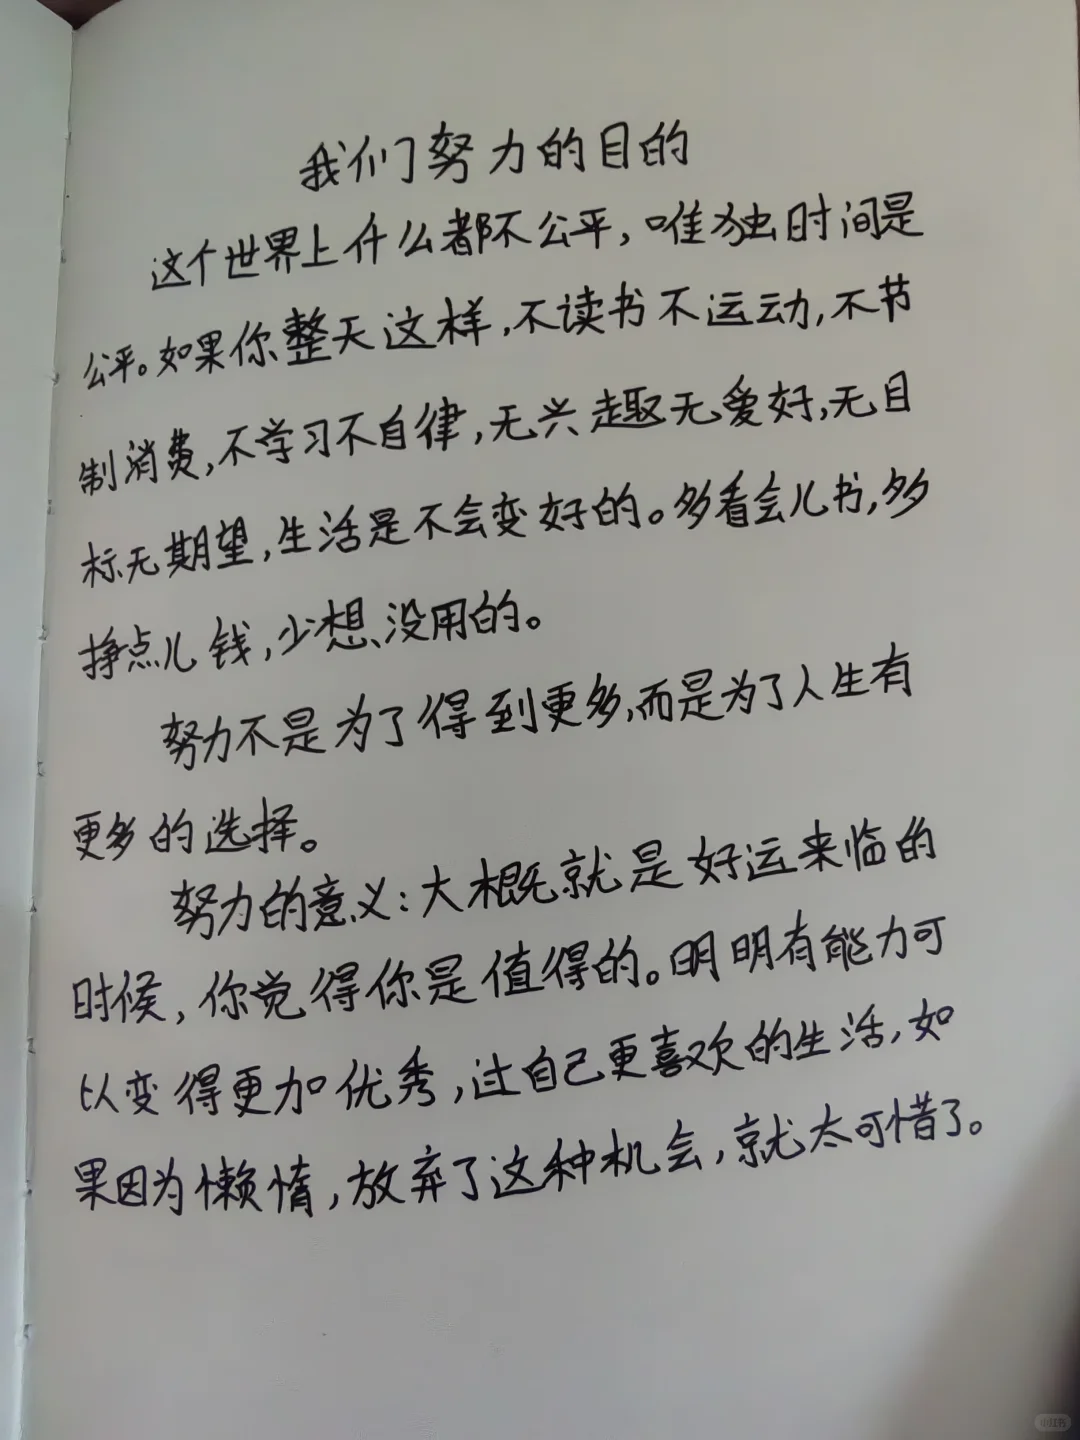 我们努力的目的
这个世界上什么都不公平,唯独时间是
公平。如果你整天这样,不读书不运动,不节
制消费,不学习不自律,无兴趣无爱好,无目
标无期望,生活是不会变好的。多看会儿书,多
挣点儿钱,少想、没用的。
努力不是为了得到更多,而是为了人生有
更多的选择。
努力的意义:大概就是好运来临的
时候,你觉得你是值得的。明明有能力可
以变得更加优秀,过自己更喜欢的生活,如
果因为懒惰,放弃了这种机会,就太可惜了。
小红书